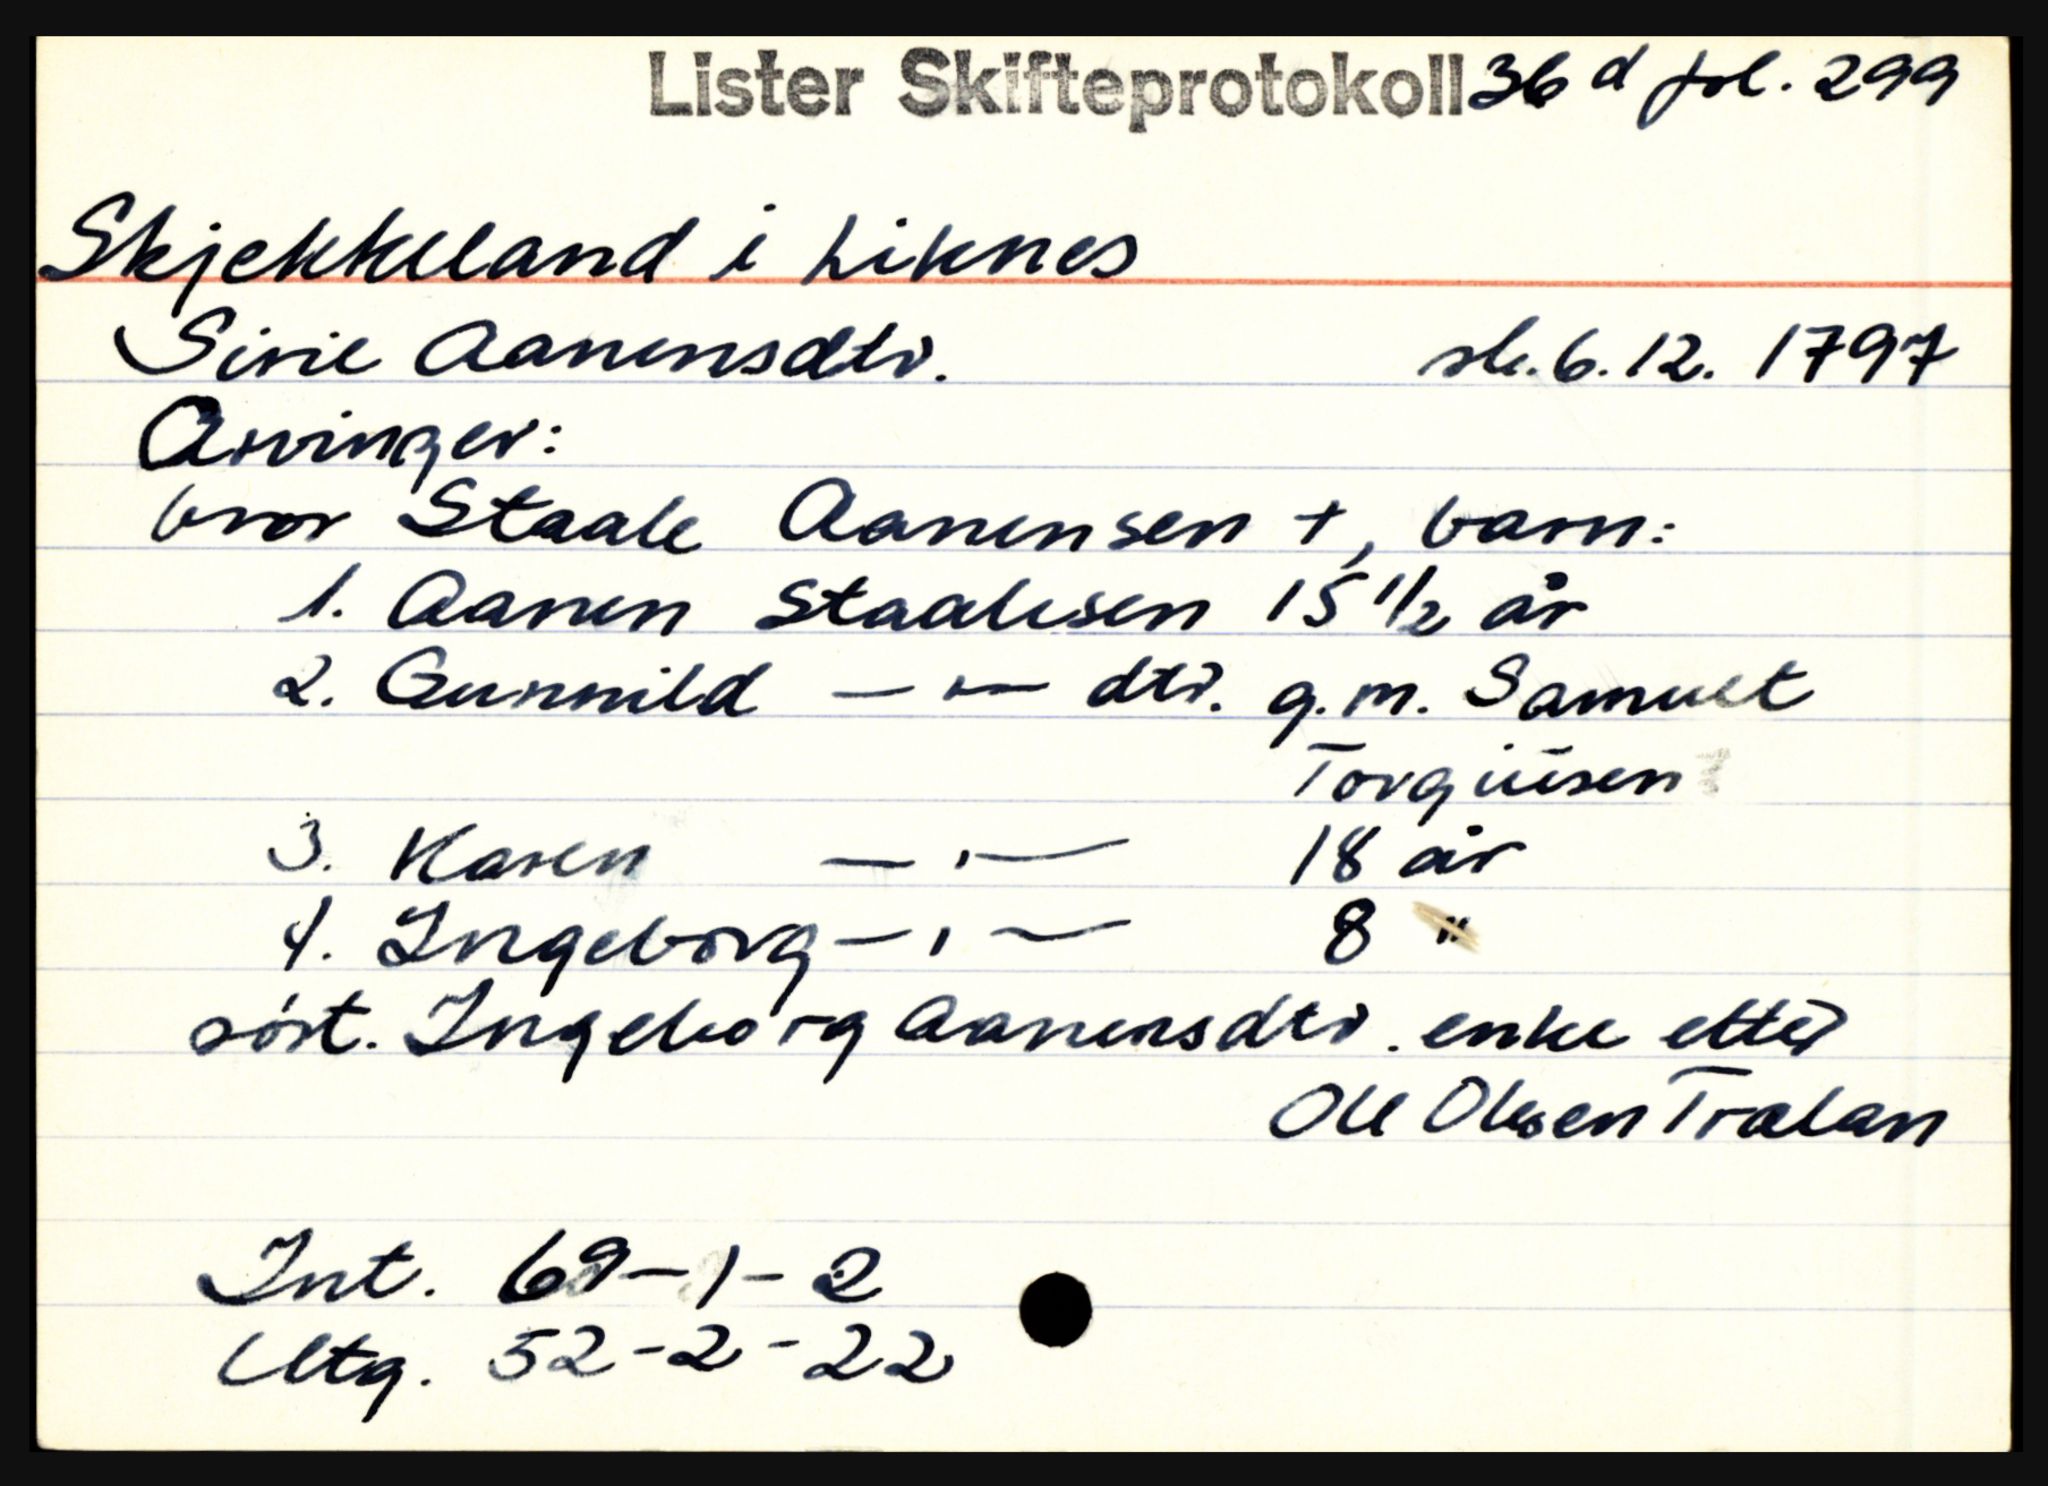 Lister Skifteprotokoll 36 d fol. 299
Skjekkeland i Liknes
Sirie Aanensdtr. sk. 6.12. 1797
Arvinger:
bror Staale Aanensen +, barn:
1. Aanen Staalesen 15 1/2 år
2. Gunnild —"— dtr. g.m. Samuel
Torgiusen
3. Karen —"— 18 år
4. Ingeborg —"— 8 "
søst. Ingeborg Aanensdtr. enke etter
Ole Olesen Træland
Int. 69-1-2
Utg. 52-2-22